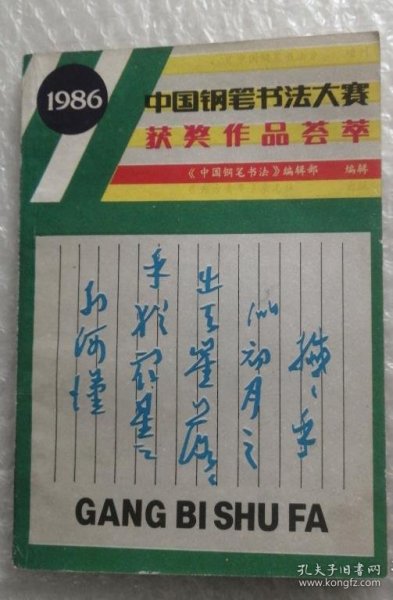 1986
中国钢笔书法大赛
获奖作品荟萃
《中国钢笔书法》编辑部 编辑
纖〻乎
似初月之
出天崖落〻
乎猶眾星之
列河漢
GANG BI SHU FA
孔夫子旧书网
https://www.kongfz.com